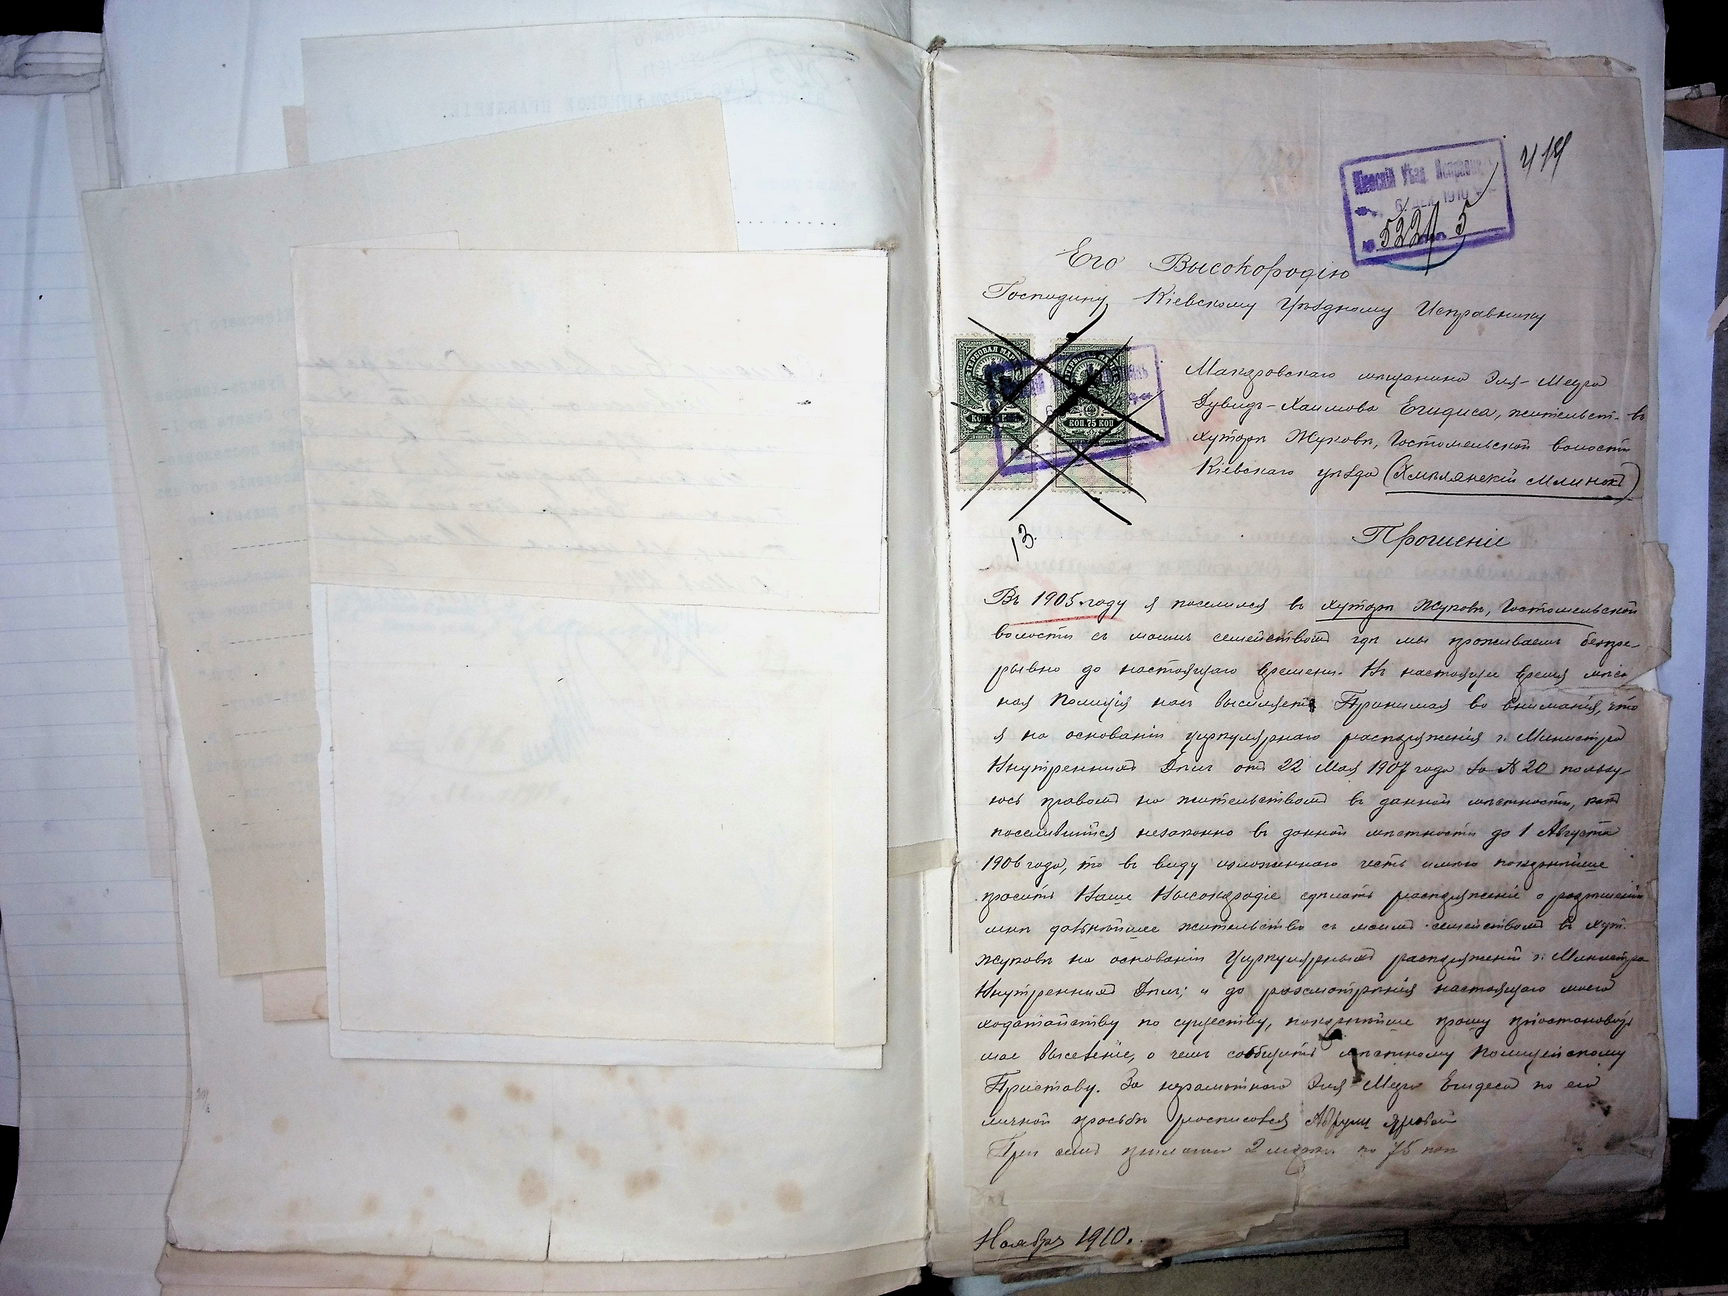 414
Кіевскій Уѣзд. Исправникъ
6. ДЕК. 1910
№ 5221 5
Его Высокородію
Господину Кіевскому Уѣздному Исправнику
КОП. 75 КОП
Макаровскаго мѣщанина Эля-Меера
Дувидъ-Хаимова Егидиса, жительст. въ
хуторѣ Жуковѣ, Гостомельской волости
Кіевскаго уѣзда (Хмѣлянскій Млинокъ)
13.
Прошеніе
Въ 1905 году я поселился въ хуторѣ Жуковѣ, Гостомельской
волости съ моимъ семействомъ гдѣ мы проживаемъ безпре-
рывно до настоящаго времени. Въ настоящее время мѣст
ная Полиція насъ высиляетъ Принимая во вниманія, что
я на основаніи циркулярнаго распоряженія г. Министра
Внутреннихъ Дѣлъ отъ 22 Мая 1907 года за № 20 пользу-
юсь правомъ на жительствомъ въ данной мѣстности, какъ
поселившійся незаконно въ данной мѣстности до 1 Августа
1906 года, то въ виду изложеннаго честь имѣю покорнѣйше
просить Ваше Высокородіе сдѣлать распоряженіе о разрѣшеніи
мнѣ дальнѣйшее жительство съ моимъ семействомъ въ хут.
Жуковѣ на основаніи Циркулярныхъ распоряженій г. Министра
Внутреннихъ Дѣлъ; и до разсмотрѣнія настоящаго моего
ходатайству по существу, покорнѣйше прошу пріостановить
мое выселеніе, о чемъ сообщить мѣстному Полицейскому
Приставу. За неграмотнаго Эля-Меера Егидеса по его
личной просьбѣ росписовся
При семъ прилагаю 2 марки по 75 коп
Ноябрь 1910.